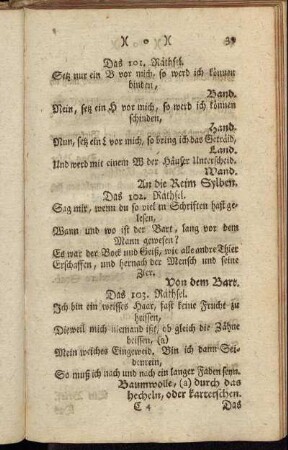 )( o )( 39
Das 101. Räthsel.
Setz nur ein B vor mich, so werd ich können
binden,
Band.
Nein, setz ein H vor mich, so werd ich können
schinden,
Hand.
Nun, setz ein L vor mich, so bring ich das Getraid,
Land.
Und werd mit einem W der Häuser Unterscheid.
Wand.
An die Reim Sylben.
Das 102. Räthsel.
Sag mir, wenn du so viel in Schriften hast ge-
lesen,
Wann und wo ist der Bart, lang vor dem
Mann gewesen?
Es war der Bock und Geiß, wie alle andre Thier
Erschaffen, und hernach der Mensch und seine
Zier.
Von dem Bart.
Das 103. Räthsel.
Ich bin ein weisses Haar, fast keine Frucht zu
heissen,
Dieweil mich niemand ißt, ob gleich die Zähne
beissen, (a)
Mein weiches Eingeweid. Bin ich dann Sei-
denrein,
So muß ich nach und nach ein langer Faden seyn.
Baumwolle, (a) durch das
hecheln, oder kartetschen.
C 4 Das